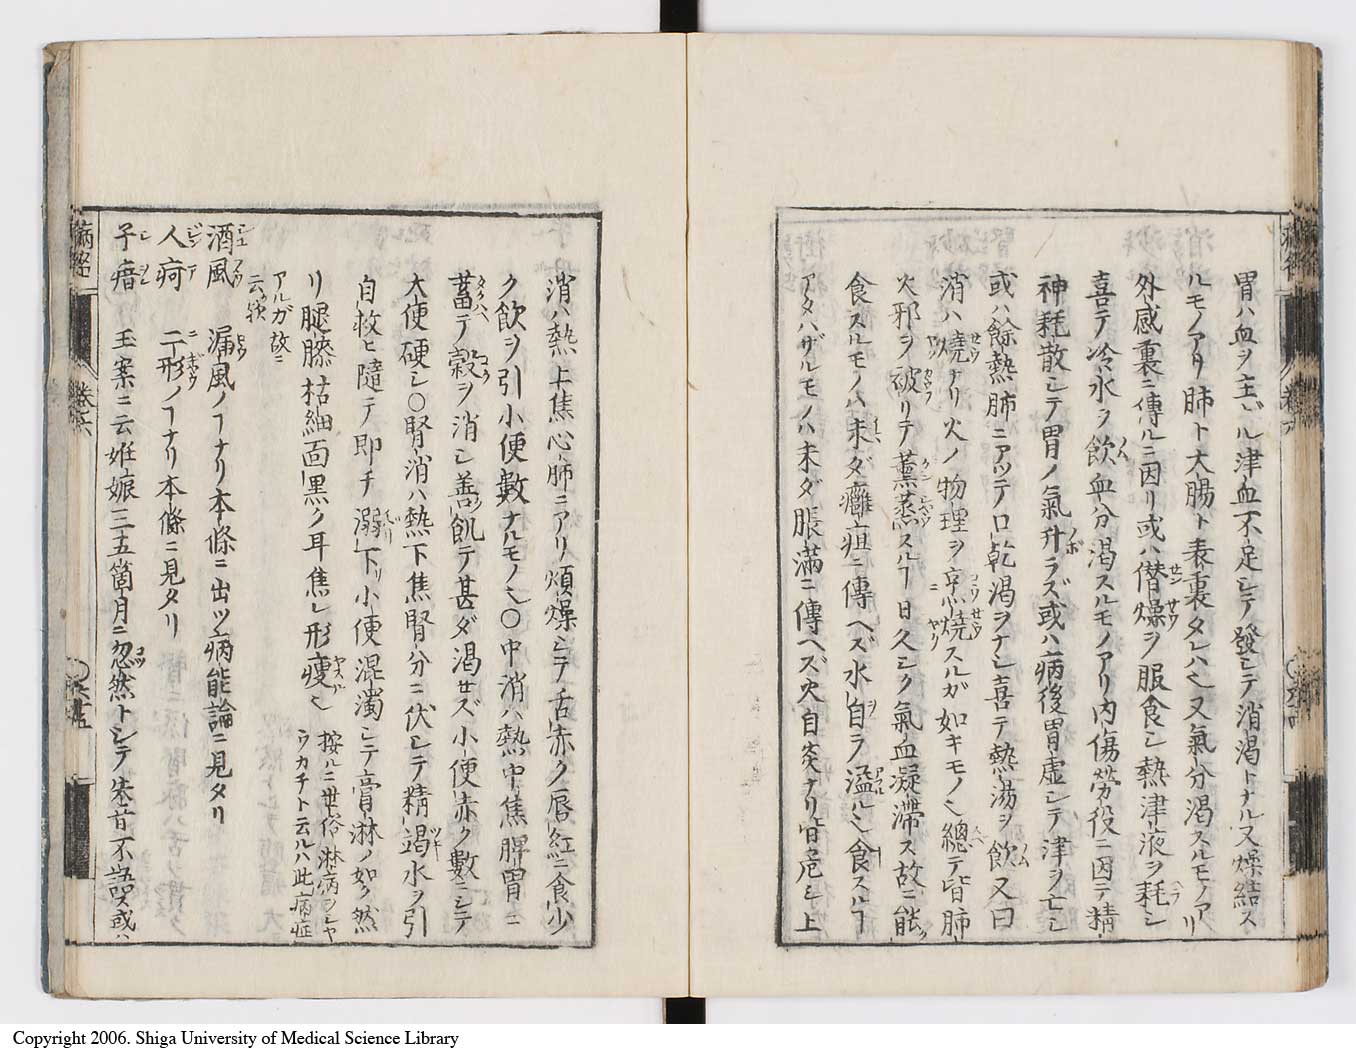 胃ハ血ヲ主ドル津血不足シテ發シテ消渇トナル又燥結ス
ルモノアリ肺ト大腸ト表裏タレハ也又氣分渇スルモノアリ
外感裏ニ傳ルニ因リ或ハ僣燥ヲ服食シ熱津液ヲ耗シ
喜テ冷水ヲ飲血分渇スルモノアリ内傷労役ニ因テ精
神耗散シテ胃ノ氣升ラズ或ハ病後胃虚シテ津ヲ亡シ
或ハ餘熱肺ニアツテ口乾渇ヲナシ喜テ熱湯ヲ飲又曰
消ハ焼ナリ火ノ物理ヲ烹焼スルガ如キモノ也總テ皆肺
火邪ヲ被リテ薫蒸スルヿ日久シク氣血凝滞ス故ニ能
食スルモノハ未ダ癰疽ニ傳ヘズ水自ラ溢ル也食スルヿ
アタハザルモノハ未ダ脹滿ニ傳ヘズ火自炎ナリ皆危シ上
消ハ熱上焦心肺ニアリ煩燥シテ舌赤ク唇紅ニ食少
ク飲ヲ引小便數ナルモノ也〇中消ハ熱中焦脾胃ニ
蓄テ穀ヲ消シ善飢テ甚ダ渇セズ小便赤ク數ニシテ
大便硬シ〇腎消ハ熱下焦腎分ニ伏シテ精竭水ヲ引
自救ヒ隨テ即チ溺下リ小便混濁シテ膏淋ノ如ク然
リ腿膝枯細面黒ク耳焦レ形痩也
按ルニ世俗淋病ヲシヤ
ウカチト云ルハ此病症
アルガ故ニ
云歟
酒風 漏風ノヿナリ本條ニ出ツ病能論ニ見タリ
人痾 二形ノヿナリ本條ニ見タリ
子瘖 玉案ニ云姙娠三五箇月ニ忽然トシテ失音不語或ハ
卷六
Copyright 2006. Shiga University of Medical Science Library